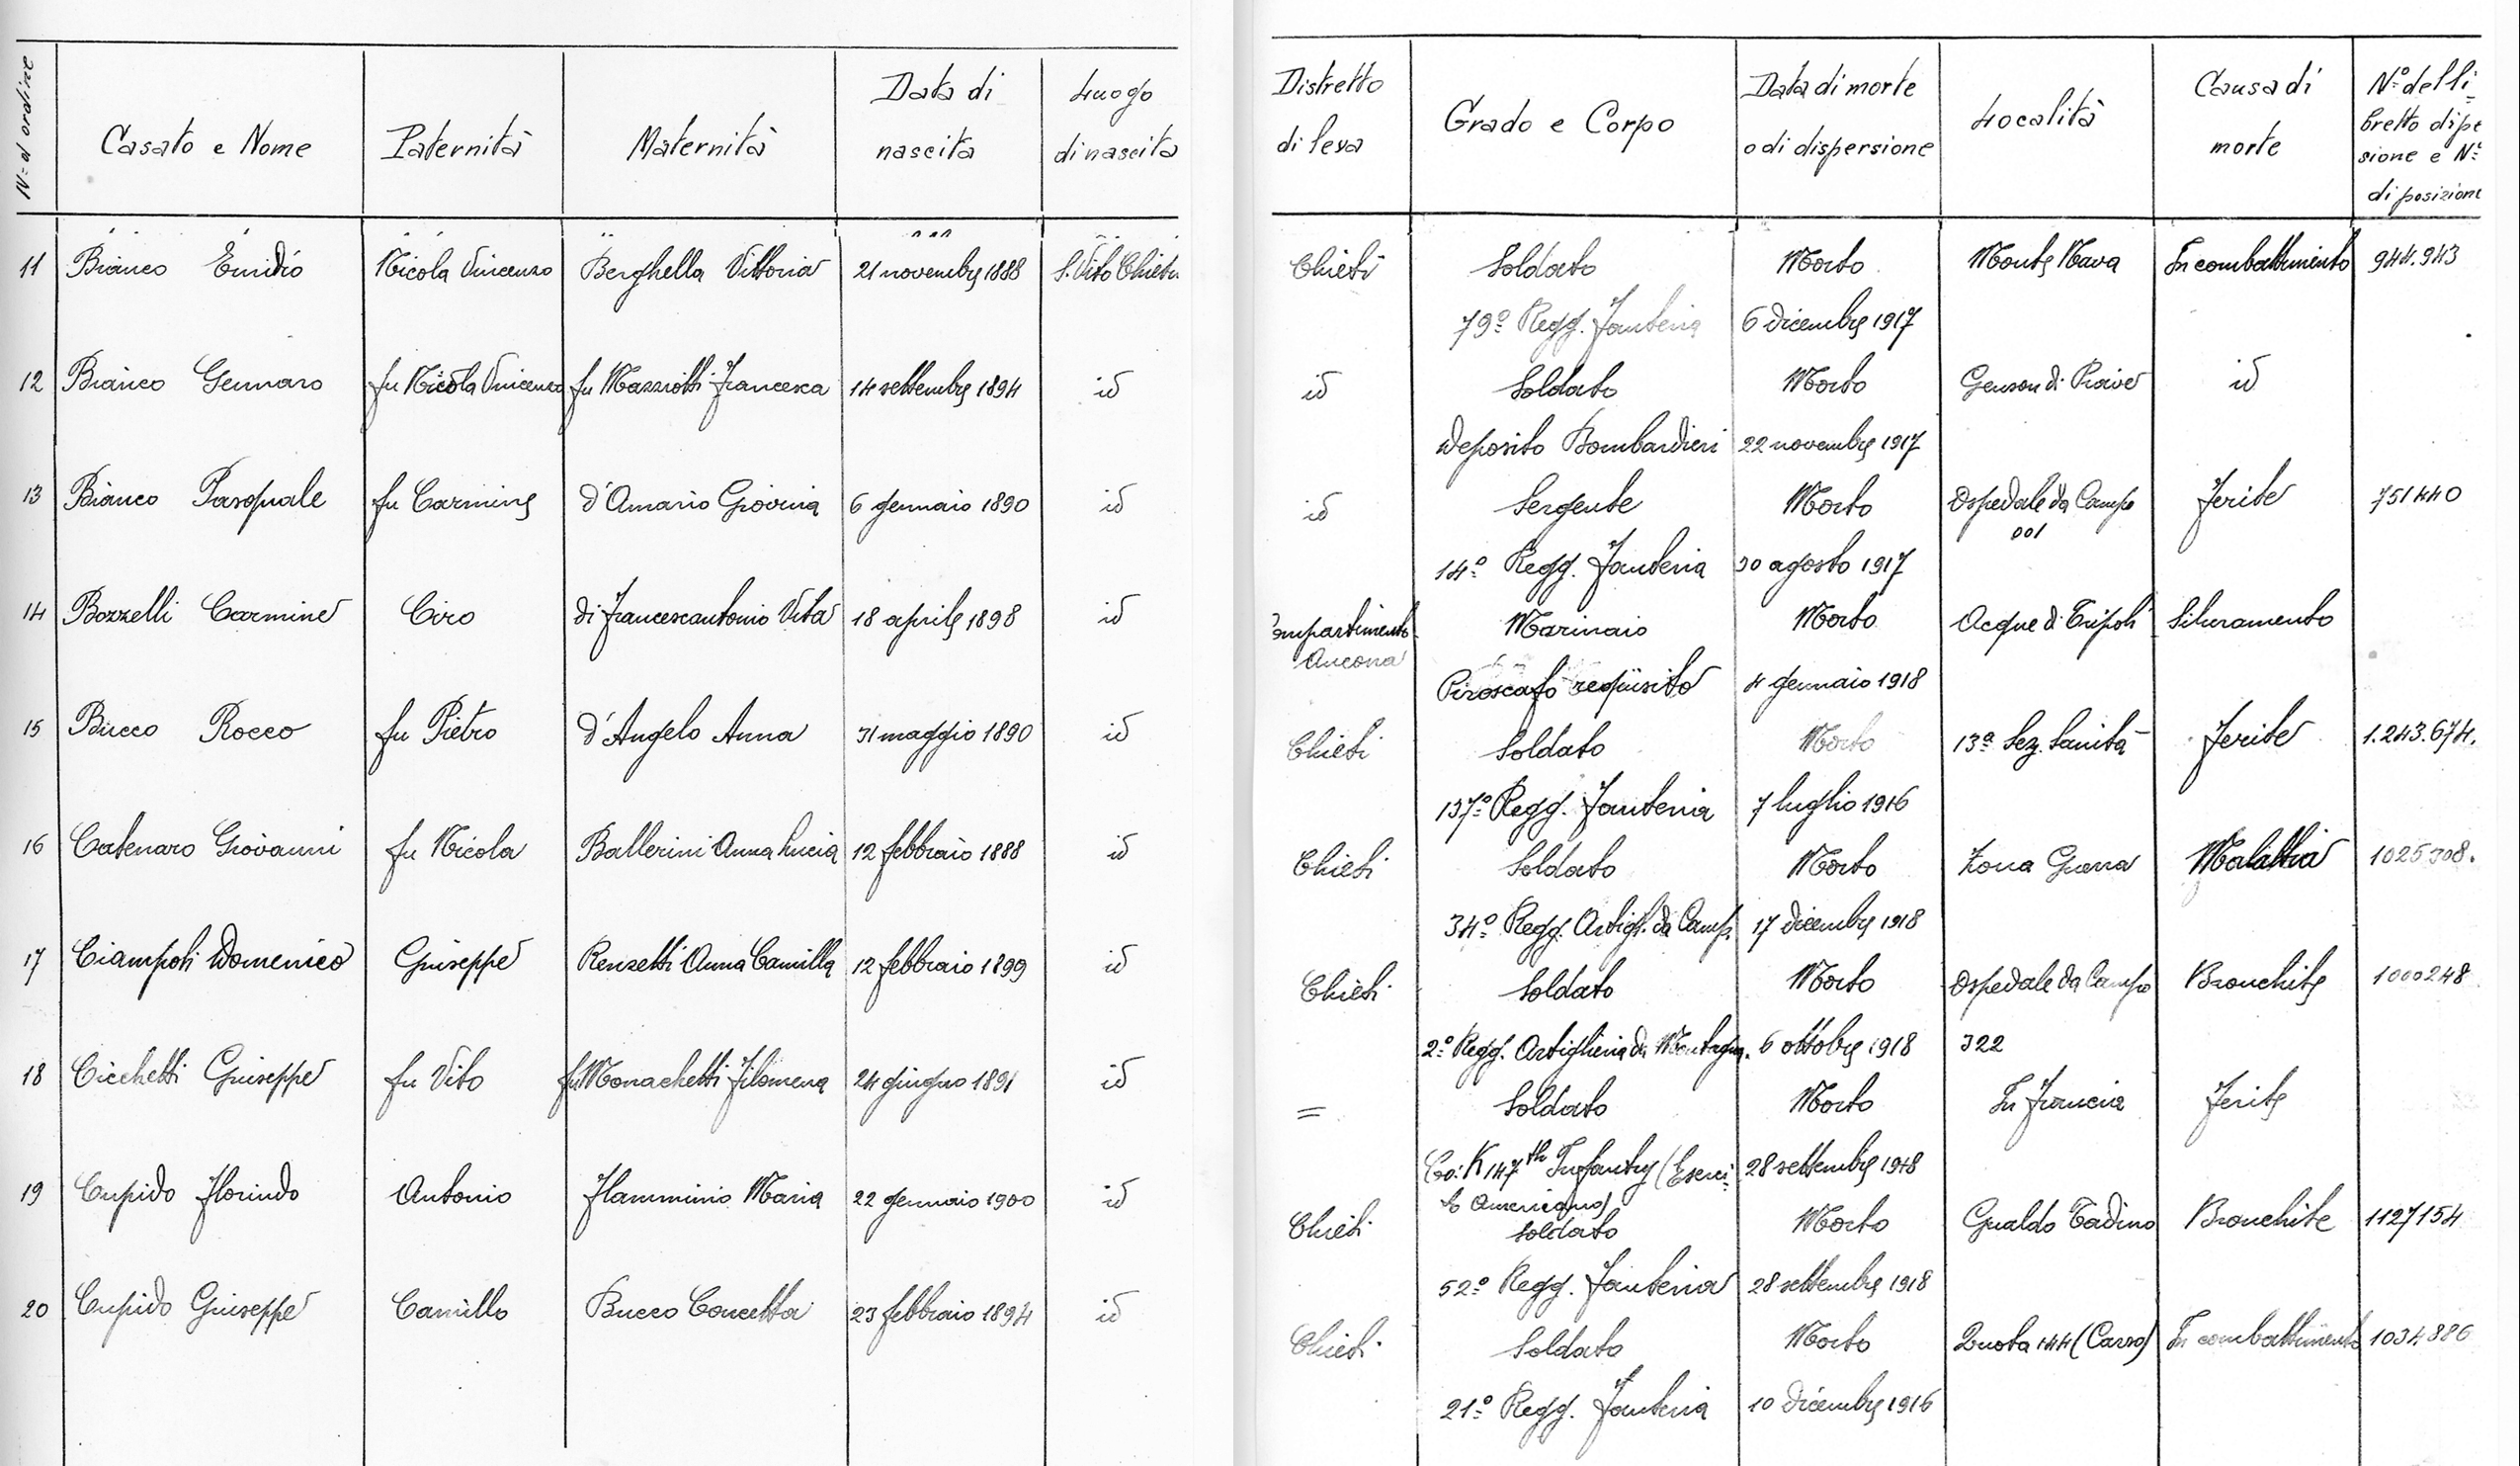 N.º d'ordine Casato e Nome Paternità Maternità Data di nascita Luogo di nascita
11 Bianco Emidio Nicola Vincenzo Berghella Vittoria 21 novembre 1888 S. Vito Chietin
12 Bianco Gennaro fu Nicola Vincenzo fu Mazziotti Francesca 14 settembre 1894 id
13 Bianco Pasquale fu Carmine d'Amario Giovina 6 gennaio 1890 id
14 Bozzelli Carmine Ciro di Francescantonio Vita 18 aprile 1898 id
15 Bucco Rocco fu Pietro d'Angelo Anna 31 maggio 1890 id
16 Catenaro Giovanni fu Nicola Ballerini Anna Lucia 12 febbraio 1888 id
17 Ciampoli Domenico Giuseppe Renzetti Anna Camilla 12 febbraio 1899 id
18 Cicchetti Giuseppe fu Vito fu Monachetti Filomena 24 giugno 1891 id
19 Cupido Florindo Antonio Flamminio Maria 22 gennaio 1900 id
20 Cupido Giuseppe Camillo Bucco Concetta 23 febbraio 1894 id
Distretto di leva Grado e Corpo Data di morte o di dispersione Località Causa di morte N.º del li= bretto di pe sione e N.º di posizione
Chieti Soldato Morto Monte Nava In combattimento 944.943
79º Regg. Fanteria 6 dicembre 1917
id Soldato Morto Genson di Piave id
Deposito Bombardieri 22 novembre 1917
id Sergente Morto Ospedale da Campo Ferite 751440
001
14º Regg. Fanteria 30 agosto 1917
Compartimento Marinaio Morto Acque di Tripoli Siluramento
Ancona
Piroscafo requisito 4 gennaio 1918
Chieti Soldato Morto 13ª Sez. Sanità Ferite 1.243.674.
137º Regg. Fanteria 7 luglio 1916
Chieti Soldato Morto Zona Guerra Malattia 1025308.
34º Regg. Artigl. da Camp. 17 dicembre 1918
Chieti Soldato Morto Ospedale da Campo Bronchite 1000248
2º Regg. Artiglieria da Montagna. 6 ottobre 1918 322
= Soldato Morto In Francia Ferite
Co: K 147th Infantry (Eserci= 28 settembre 1918
to Americano)
Chieti Soldato Morto Gualdo Tadino Bronchite 1127154
52º Regg. Fanteria 28 settembre 1918
Chieti Soldato Morto Quota 144 (Carso) In combattimento 1034886
21º Regg. Fanteria 10 dicembre 1916